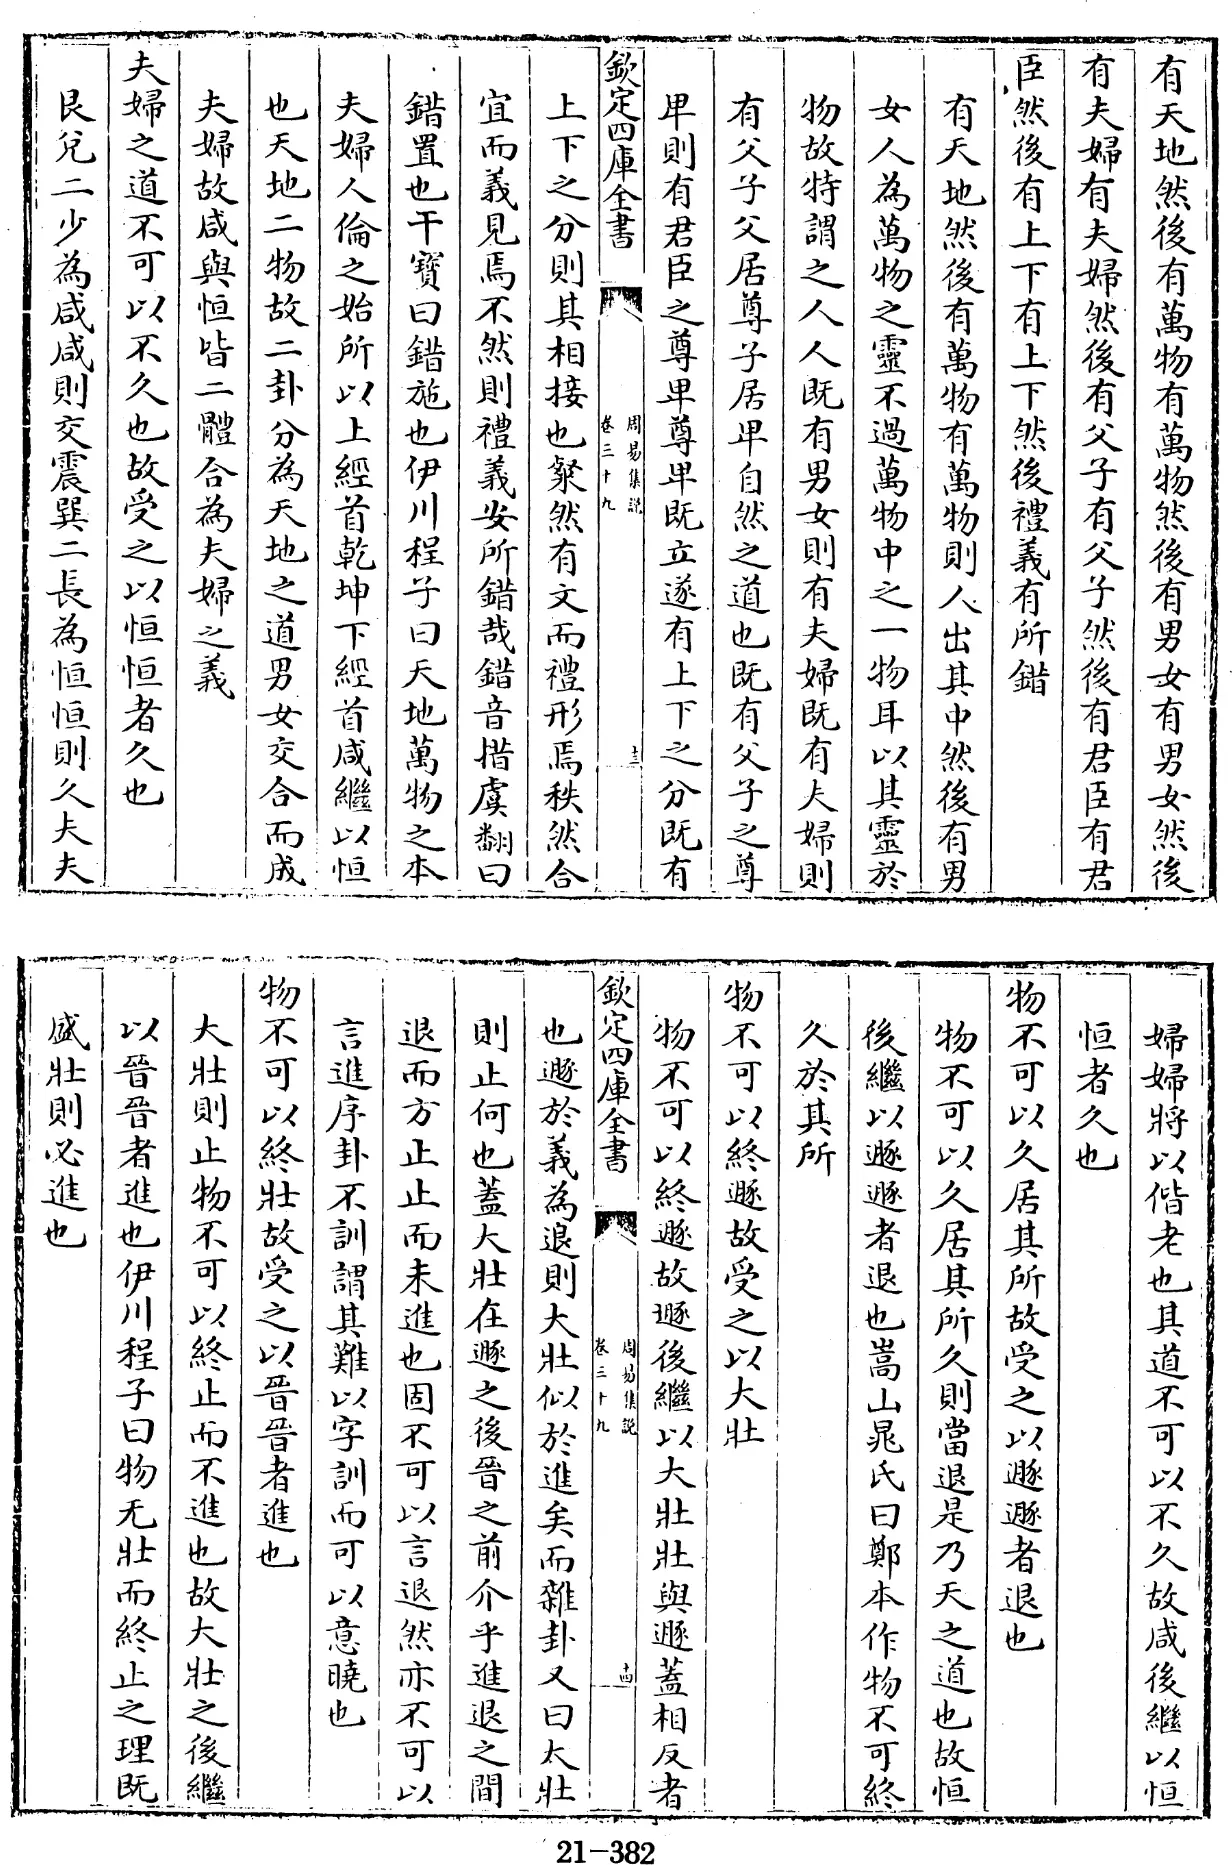 有天地然後有萬物有萬物然後有男女有男女然後
有夫婦有夫婦然後有父子有父子然後有君臣有君
臣然後有上下有上下然後禮義有所錯
有天地然後有萬物有萬物則人出其中然後有男
女人為萬物之靈不過萬物中之一物耳以其靈於
物故特謂之人人既有男女則有夫婦既有夫婦則
有父子父居尊子居卑自然之道也既有父子之尊
卑則有君臣之尊卑尊卑既立遂有上下之分既有
欽定四庫全書
周易集說
卷三十九
十三
上下之分則其相接也粲然有文而禮形焉秩然合
宜而義見焉不然則禮義安所錯哉錯音措虞翻曰
錯置也干寶曰錯施也伊川程子曰天地萬物之本
夫婦人倫之始所以上經首乾坤下經首咸繼以恒
也天地二物故二卦分為天地之道男女交合而成
夫婦故咸與恒皆二體合為夫婦之義
夫婦之道不可以不久也故受之以恒恒者久也
艮兌二少為咸咸則交震巽二長為恒恒則久夫夫
婦婦將以偕老也其道不可以不久故咸後繼以恒
恒者久也
物不可以久居其所故受之以遯遯者退也
物不可以久居其所久則當退是乃天之道也故恒
後繼以遯遯者退也嵩山晁氏曰鄭本作物不可終
久於其所
物不可以終遯故受之以大壯
物不可以終遯故遯後繼以大壯壯與遯蓋相反者
欽定四庫全書
周易集說
卷三十九
十四
也遯於義為退則大壯似於進矣而雜卦又曰大壯
則止何也蓋大壯在遯之後晉之前介乎進退之間
退而方止止而未進也固不可以言退然亦不可以
言進序卦不訓謂其難以字訓而可以意曉也
物不可以終壯故受之以晉晉者進也
大壯則止物不可以終止而不進也故大壯之後繼
以晉晉者進也伊川程子曰物无壯而終止之理既
盛壯則必進也
21-382